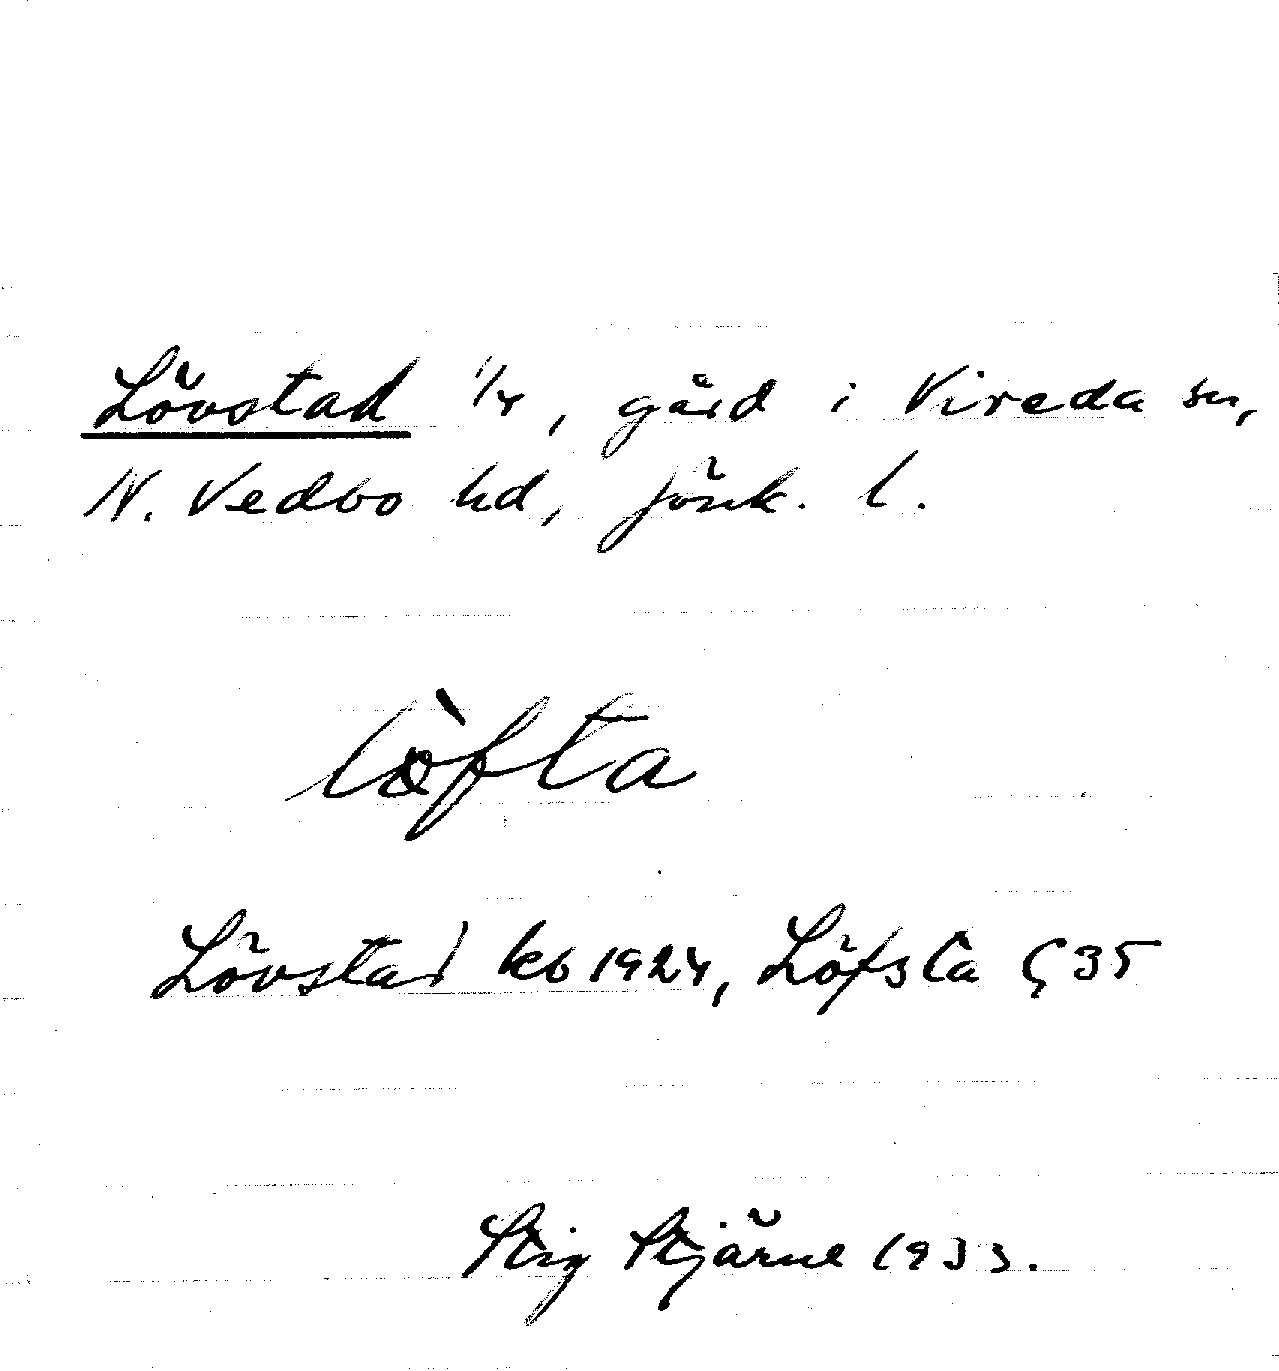 Lövstad 1/4, gård i Vireda sn,
N. Vedbo hd, Jönk. l.
lòfta
Lövstad kb 1924, Löfsta G 35
Stig Stjärne 1933.